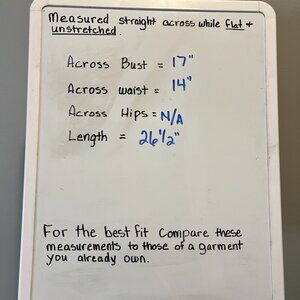 Measured straight across while flat +
unstretched.
Across Bust = 17"
Across waist = 14"
Across Hips = N/A
Length = 26 1/2"
For the best fit Compare these
measurements to those of a garment
you already own.